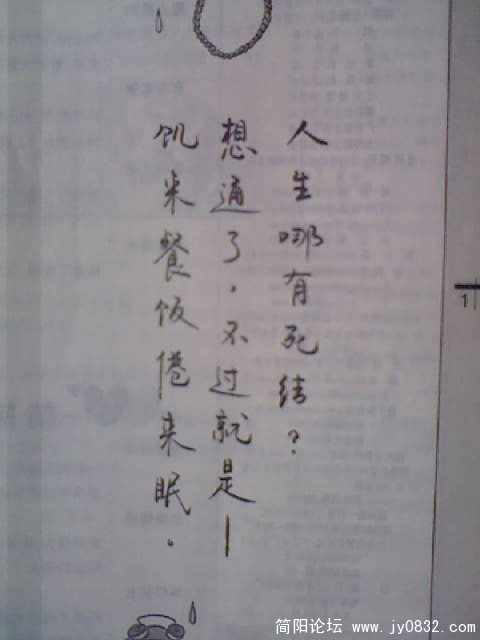 人生哪有死结?
想通了,不过就是—
饥来餐饭倦来眠。
1
简阳论坛 www.jy0832.com